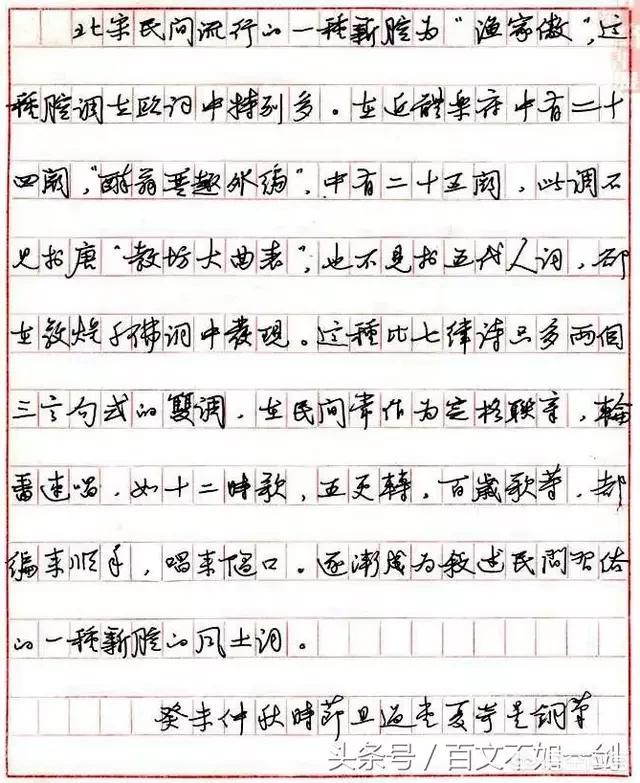 北宋民间流行的一種新腔为“渔家傲”,这
種腔调在欧词中特别多。在近體樂府中有二十
四阕,“醉翁琴趣外编”,中有二十五阕,此调不
见於唐“教坊大曲表”,也不見於五代人词,却
在敦煌子佛词中發現。这種比七律诗只多两個
三言句式的雙调,在民间常作为定格联章,輪
番速唱,如十二時歌,五更轉,百歲歌等,都
编来顺手,唱来随口。逐渐成为叙述民間习俗
的一種新腔的风土词。
癸未仲秋時節
头条号/百文不如一剑